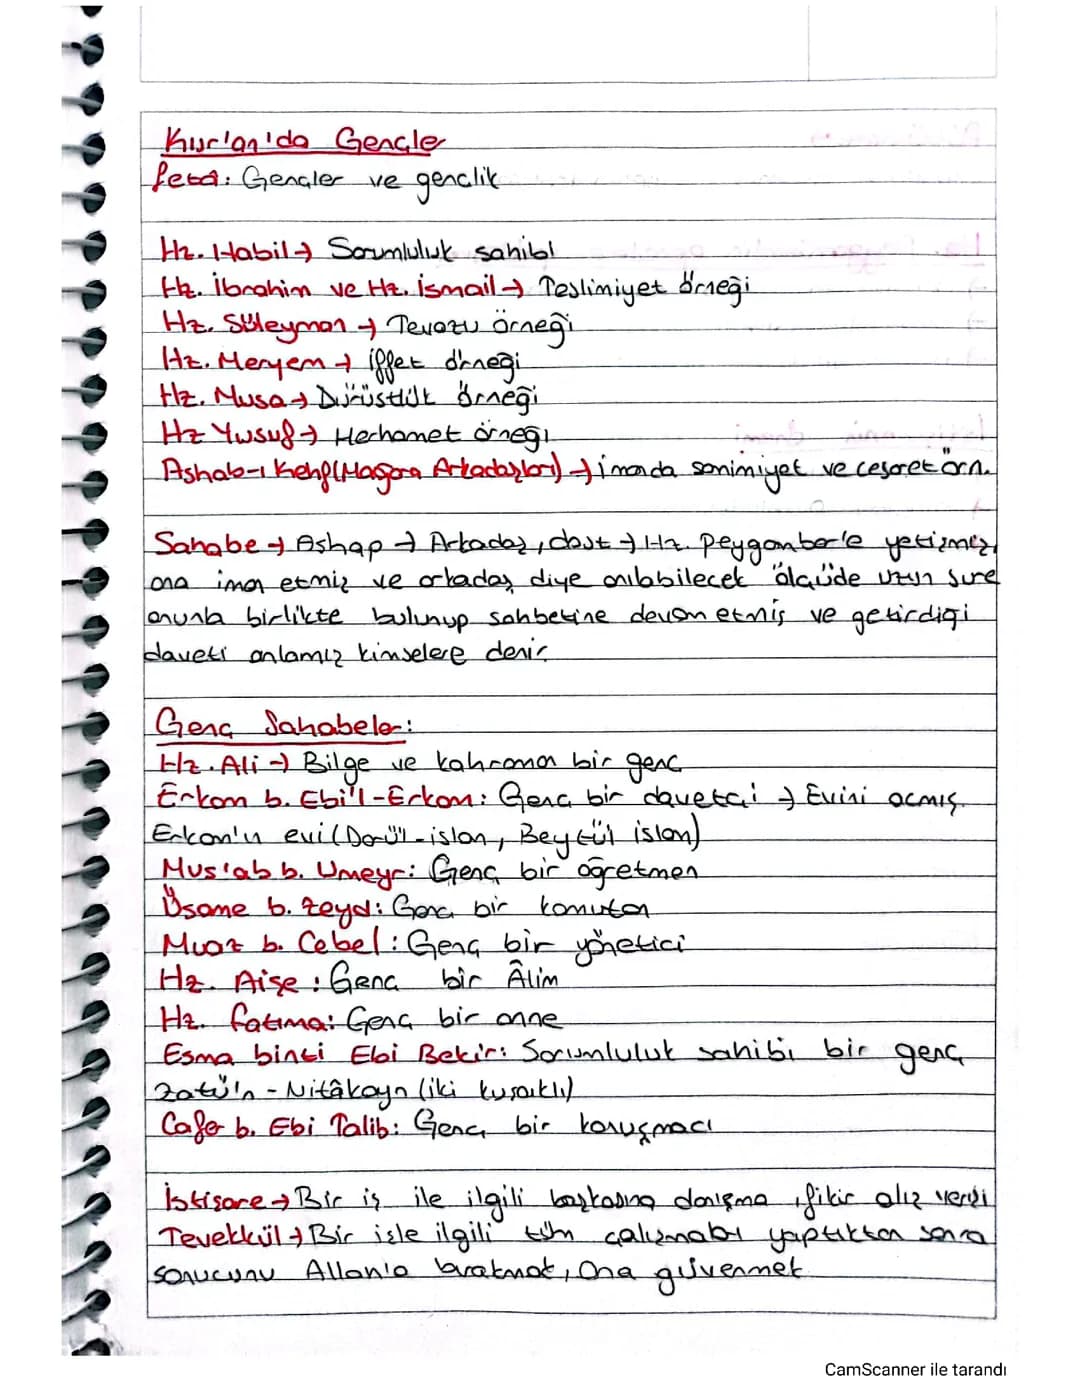 Kur'an'da Gençler
Feta: Gençler ve gençlik
Hz. Habil → Sorumluluk sahibi
Hz. İbrahim ve Hz. İsmail → Teslimiyet örneği
Hz. Süleyman → Tevazu örneği
Hz. Meryem → iffet örneği
Hz. Musa → Dürüstlük örneği
Hz Yusuf → Merhamet örneği
Ashab-ı Kehf (Mağara Arkadaşları) → imanda samimiyet ve cesaret örn.
Sahabe → Ashap → Arkadaş, dost → Hz. Peygamber'e yetişmiş,
ona iman etmiş ve arkadaş diye anılabilecek ölçüde uzun süre
onunla birlikte bulunup sohbetine devam etmiş ve getirdiği
daveti anlamış kimselere denir
Genç Sahabeler:
Hz. Ali → Bilge ve kahraman bir genç
Erkam b. Ebi'l-Erkam: Genç bir davetçi → Evini açmış.
Erkam'ın evi (Darül-islam, Beytül islam)
Mus'ab b. Umeyr: Genç bir öğretmen
Üsame b. Zeyd: Genç bir komutan
Muaz b. Cebel: Genç bir yönetici
Hz. Aişe: Genç bir Âlim
Hz. Fatıma: Genç bir anne
Esma binti Ebi Bekir: Sorumluluk sahibi bir genç
Zatü'n-Nitâkayn (iki kuşaklı)
Cafer b. Ebi Talib: Genç bir konuşmacı
İstişare → Bir iş ile ilgili başkasına danışma, fikir alış verişi
Tevekkül → Bir işle ilgili tüm çalışmaları yaptıktan sonra
sonucunu Allah'a bırakmak, Ona güvenmek
CamScanner ile tarandı